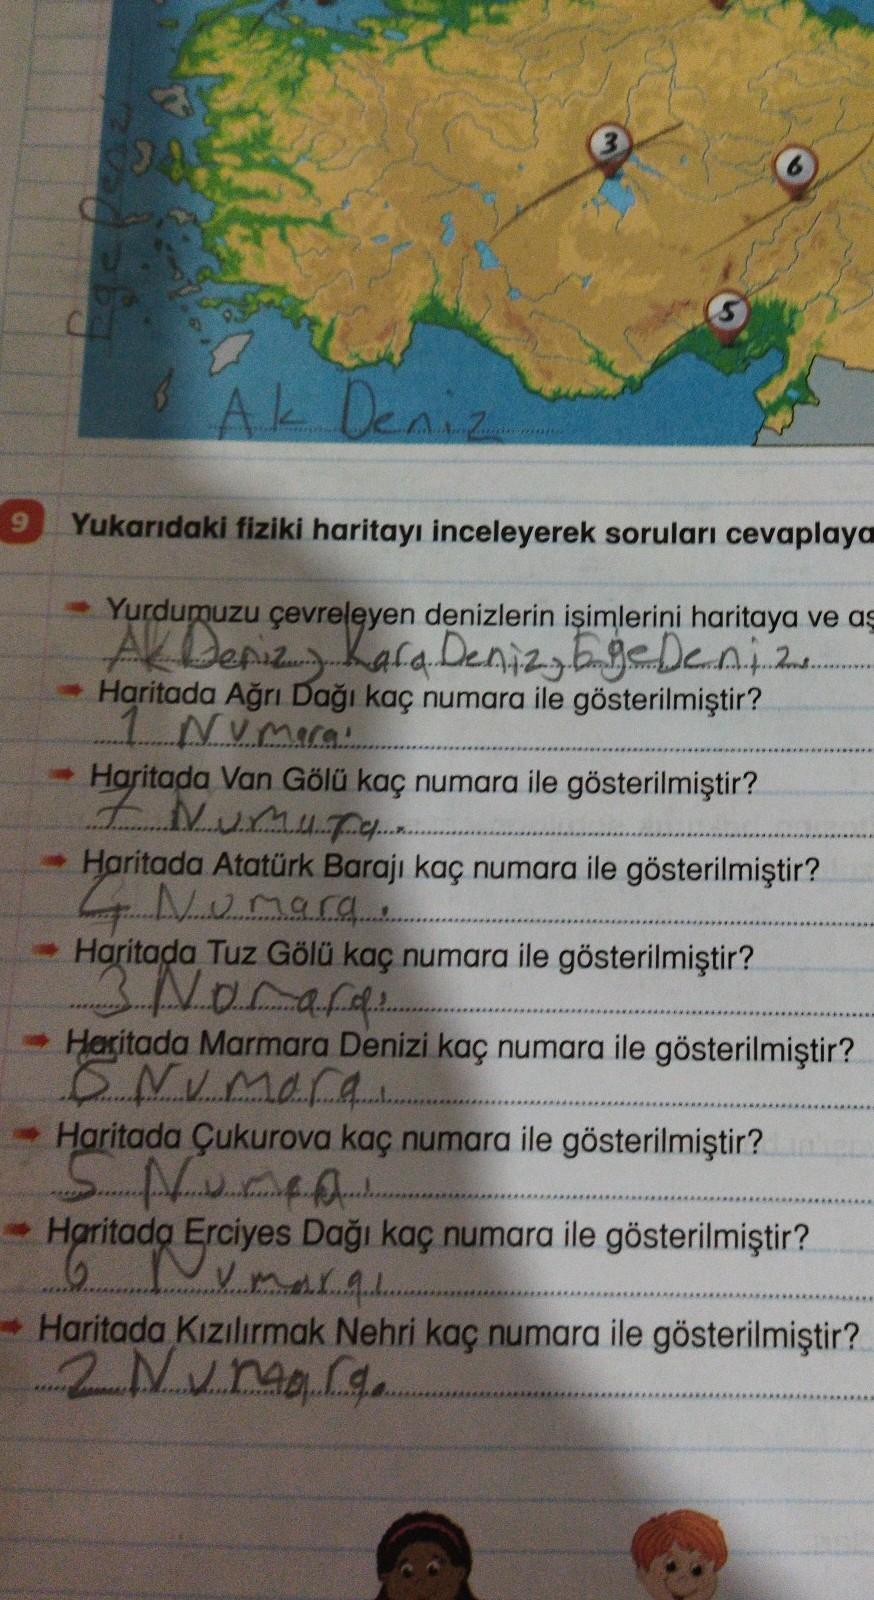 3
6
Ege Denizi
5
Ak Deniz
9 Yukarıdaki fiziki haritayı inceleyerek soruları cevaplaya
Yurdumuzu çevreleyen denizlerin isimlerini haritaya ve aş
Ak Deniz, Kara Deniz, Eğe Deniz.
Haritada Ağrı Dağı kaç numara ile gösterilmiştir?
1 Numara.
Haritada Van Gölü kaç numara ile gösterilmiştir?
7 Numura.
Haritada Atatürk Barajı kaç numara ile gösterilmiştir?
4 Numara.
Haritada Tuz Gölü kaç numara ile gösterilmiştir?
3 Nomara.
Haritada Marmara Denizi kaç numara ile gösterilmiştir?
Numara.
Haritada Çukurova kaç numara ile gösterilmiştir?
5
Haritada Erciyes Dağı kaç numara ile gösterilmiştir?
6 Numara.
Haritada Kızılırmak Nehri kaç numara ile gösterilmiştir?
2 Numara.